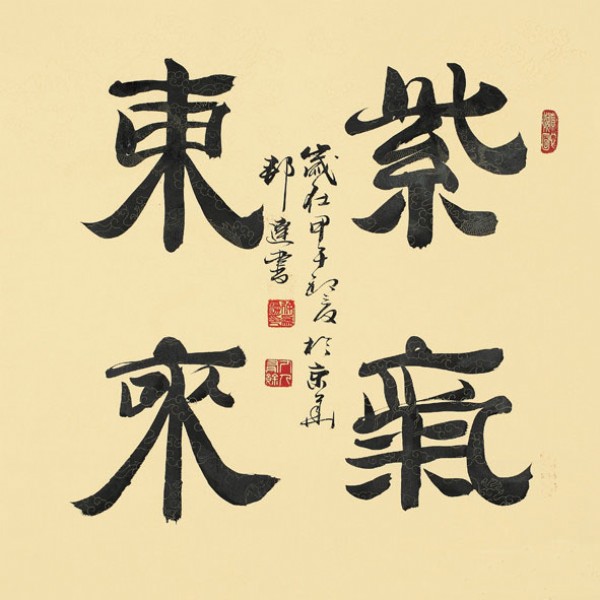 紫氣
東來
歲在甲午初夏於京華
邦達書